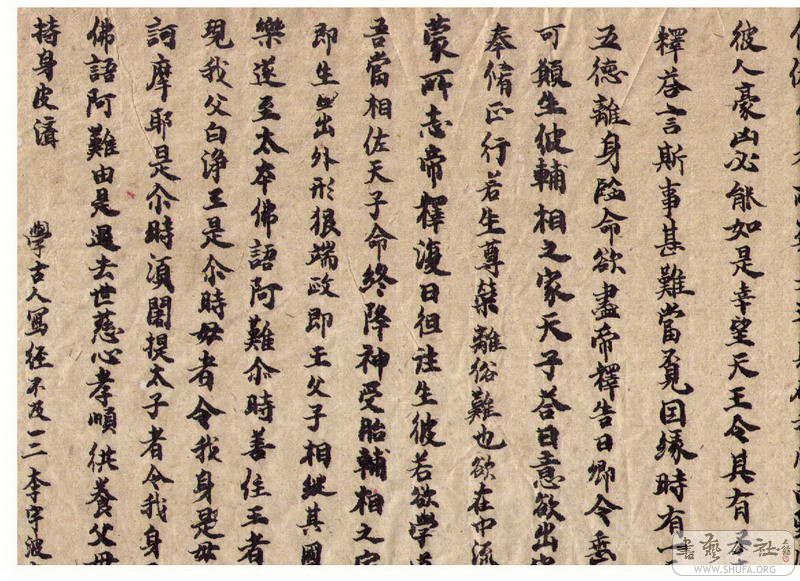 彼人豪凶必能如是幸望天王令其有
釋荅言斯事甚難當覓因緣時有一
五德離身臨命欲盡帝釋告曰卿今垂
可願生彼輔相之家天子荅曰意欲出
奉脩正行若生尊榮離俗難也欲在中流
蒙所志帝釋復曰但往生彼若欲學
吾當相佐天子命終降神受胎輔相之家
即生出外形狠端政即王父子相継其國
樂遂至太夲佛語阿難尒時善住王者
現我父白淨王是尒時母者今我身是母
訶摩耶是尒時湏闍提太子者今我身
佛語阿難由是過去世慈心孝順供養父母
持身皮濟
學古人寫経不及一二李宇
書藝公社
WWW.SHUFA.ORG